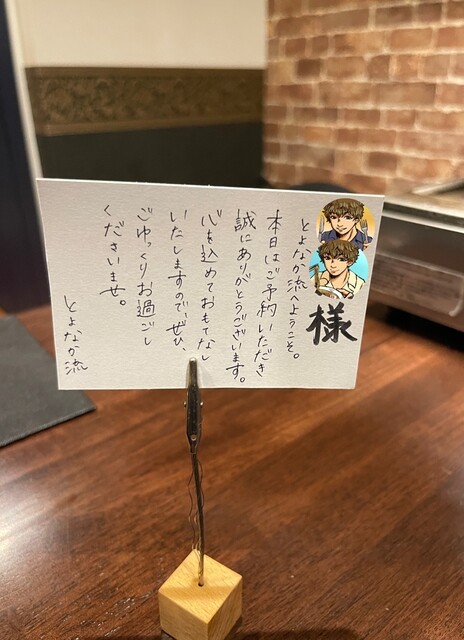 様
とよなか流へようこそ。
本日はご予約いただき
誠にありがとうございます。
心を込めておもてなし
いたしますので、ぜひ、
ごゆっくりお過ごし
くださいませ。
とよなか流